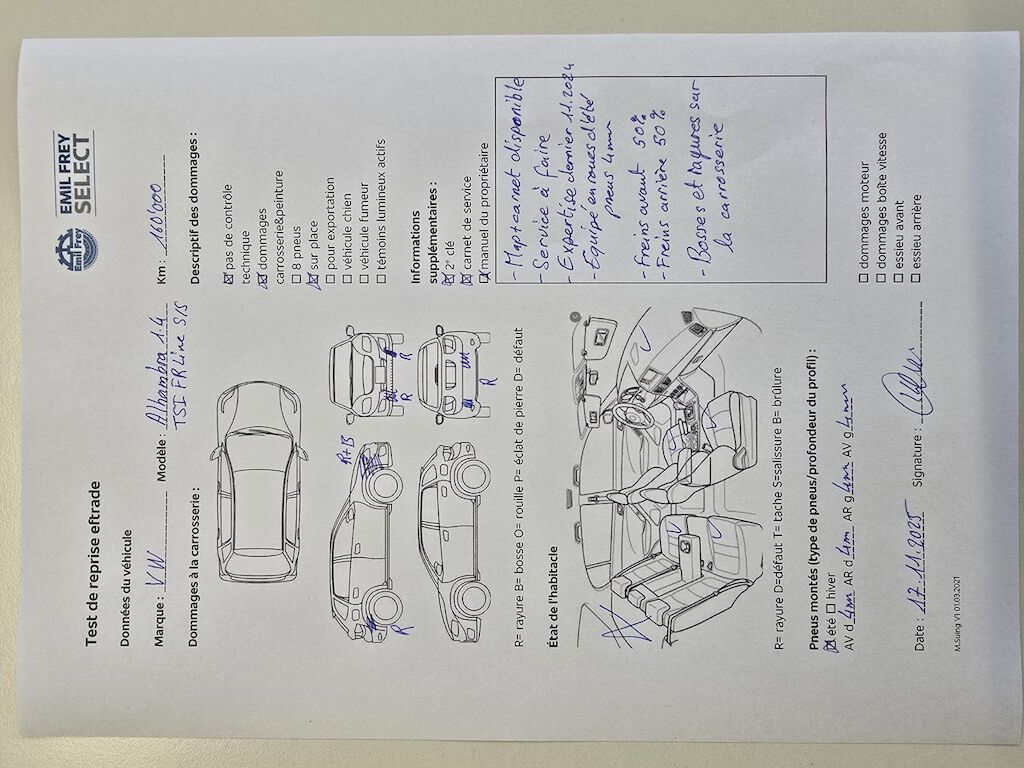 Test de reprise eftrade
Emil Frey
EMIL FREY
SELECT
Données du véhicule
Marque : VW Modèle : Alhambra 1.4 Km : 160'000
TSI FR Line S/S
Dommages à la carrosserie :
Descriptif des dommages :
pas de contrôle
technique
dommages
carrosserie&peinture
8 pneus
sur place
pour exportation
véhicule chien
véhicule fumeur
témoins lumineux actifs
R+B
R
R
R
R
Informations
supplémentaires :
2° clé
carnet de service
manuel du propriétaire
R= rayure B= bosse O= rouille P= éclat de pierre D= défaut
- Map + carnet disponible
- Service à faire
- Expertise dernier 11.2024
- Equipé en roues d'été
pneus 4mm
- Freins avant 50%
- Freins arrière 50%
- Bosses et rayures sur
la carrosserie
État de l'habitacle
R= rayure D=défaut T= tache S=salissure B= brûlure
Pneus montés (type de pneus/profondeur du profil) :
été hiver
AV d 4mm AR d 4mm AR g 4mm AV g 4mm
dommages moteur
dommages boîte vitesse
essieu avant
essieu arrière
Date : 17.11.2025 Signature :
M.Suing V1 01.03.2021